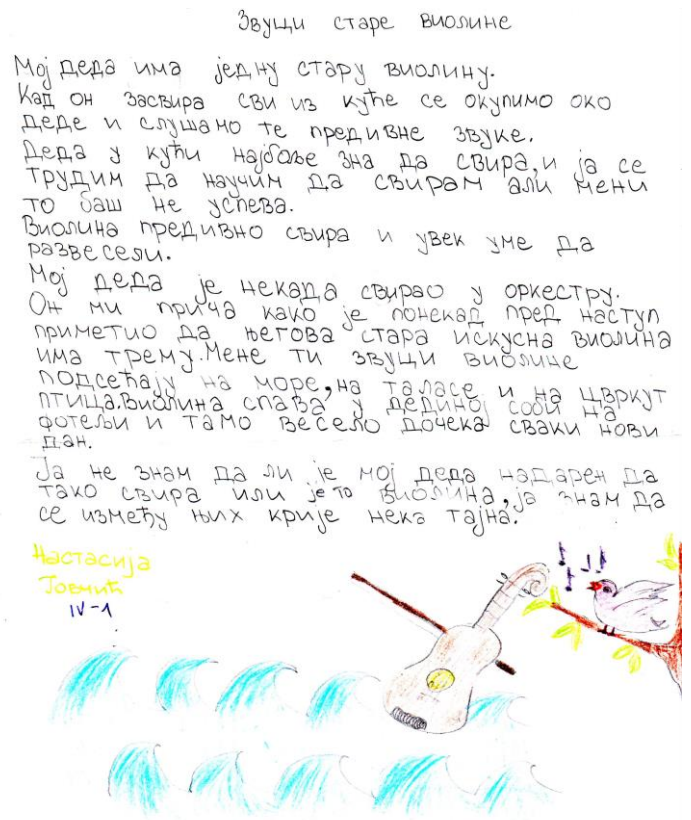 Звуци старе виолине
Мој деда има једну стару виолину.
Кад он засвира сви из куће се окупимо око
деде и слушамо те предивне звуке.
Деда у кући најбоље зна да свира, и ја се
трудим да научим да свирам али мени
то баш не успева.
Виолина предивно свира и увек уме да
развесели.
Мој деда је некада свирао у оркестру.
Он ми прича како је понекад пред наступ
приметио да његова стара искусна виолина
има трему. Мене ти звуци виолине
подсећају на море, на таласе и на цвркут
птица. Виолина спава у дединој соби на
фотељи и тамо весело дочека сваки нови
дан.
Ја не знам да ли је мој деда надарен да
тако свира или је то виолина, ја знам да
се између њих крије нека тајна.
Настасија
Јовчић
IV-1